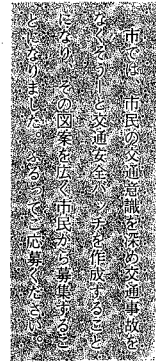 市では、市民の交通意識を深め交通事故を
なくそう！と交通安全バッチを作成すること
になり、その図案を広く市民から募集するこ
とになりました。ふるってご応募ください。